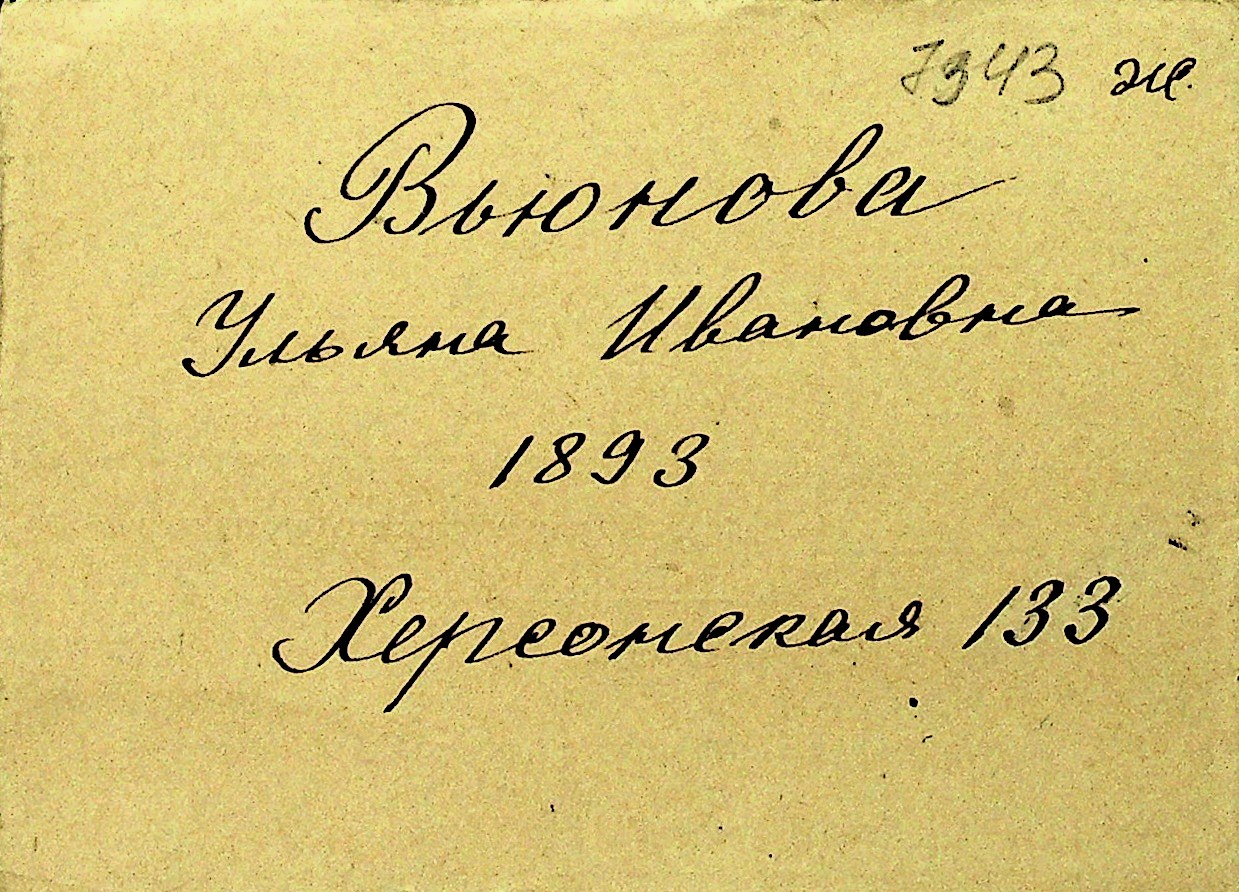 7943 ж.
Вьюнова
Ульяна Ивановна
1893
Херсонская 133